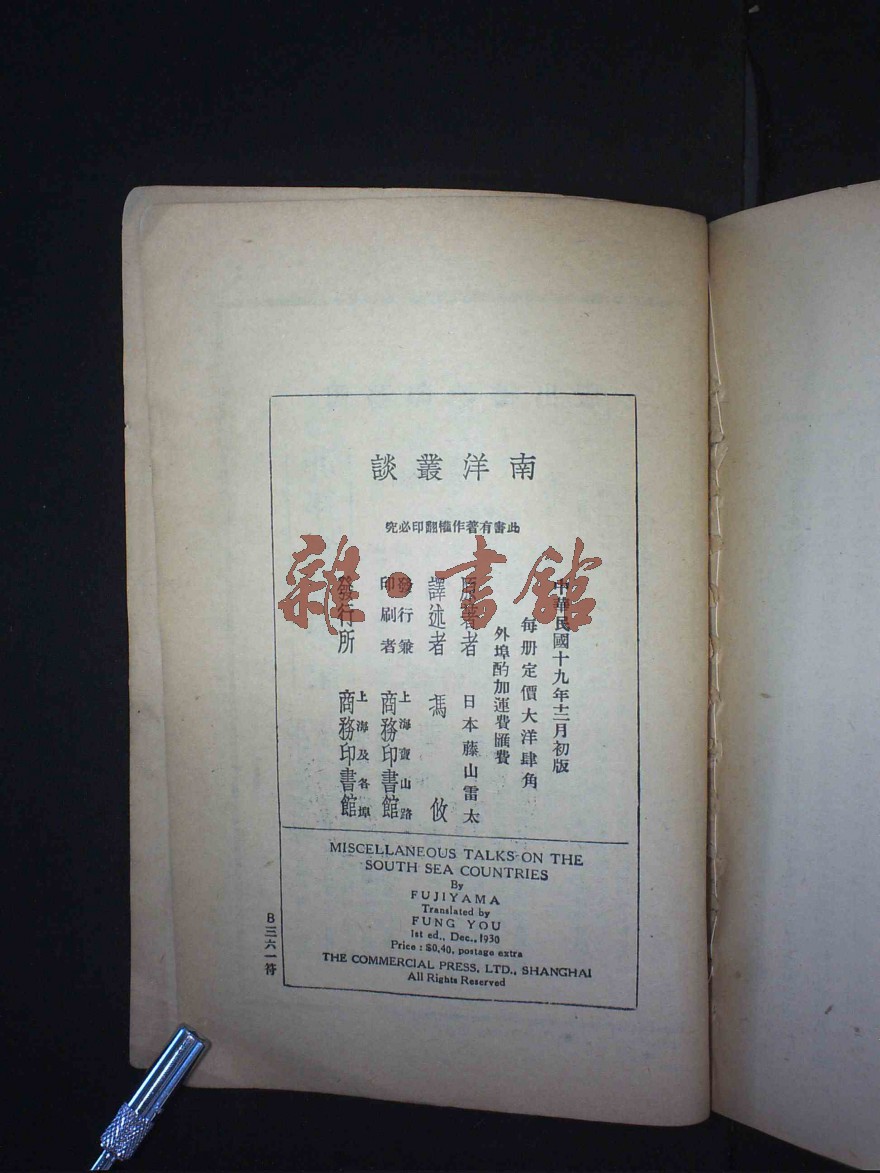 南洋叢談
此書有著作權翻印必究
中華民國十九年十二月初版
每册定價大洋肆角
外埠酌加運費匯費
原著者 日本藤山雷太
譯述者 馮攸
發行兼印刷者 上海寶山路 商務印書館
發行所 上海及各埠 商務印書館
MISCELLANEOUS TALKS ON THE
SOUTH SEA COUNTRIES
By
FUJIYAMA
Translated by
FUNG YOU
1st ed., Dec., 1930
Price : $0.40, postage extra
THE COMMERCIAL PRESS, LTD., SHANGHAI
All Rights Reserved
B三六一符
雜·書館